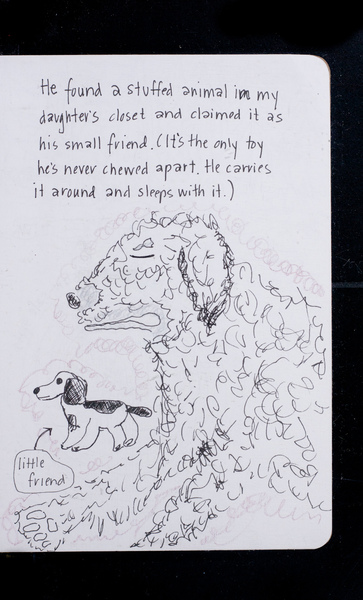 He found a stuffed animal in my
daughter's closet and claimed it as
his small friend. (It's the only toy
he's never chewed apart. He carries
it around and sleeps with it.)
little
friend